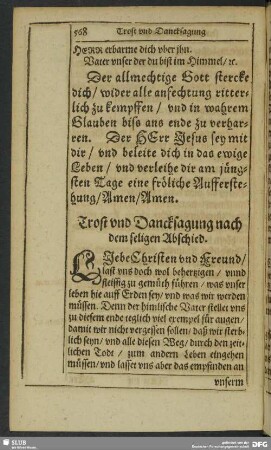 568 Trost vnd Dancksagung
HERR erbarme dich vber jhn.
Vater vnser der du bist im Himmel/ ꝛc.
Der allmechtige Gott stercke
dich/ wider alle anfechtung ritter-
lich zu kempffen/ vnd in wahrem
Glauben biss ans ende zu verhar-
ren. Der HErr Jesus sey mit
dir/ vnd beleite dich in das ewige
Leben/ vnd verleihe dir am jüng-
sten Tage eine fröliche Aufferste-
hung/ Amen/ Amen.
Trost vnd Dancksagung nach
dem seligen Abschied.
LIebe Christen vnd Freund/
last vns doch wol behertzigen/ vnnd
fleissig zu gemüth führen/ was vnser
leben hie auff Erden sey/ vnd was wir werden
müssen. Denn der himlische Vater stellet vns
zu diesem ende teglich viel exempel für augen/
damit wir nicht vergessen sollen/ daß wir sterb-
lich seyn/ vnd alle diesen Weg/ durch den zeit-
lichen Todt/ zum andern Leben eingehen
müssen/ vnd lasset vns aber das empfinden an
vnserm
SLUB
DFG